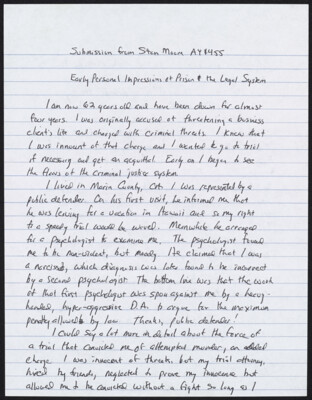 Submission from Stan Moore AY8455
Early Personal Impressions of Prison & the Legal System
I am now 62 years old and have been down for almost
four years. I was originally accused of threatening a business
client's life and charged with criminal threats. I knew that
I was innocent of that charge and I wanted to go to trial
if necessary and get an acquittal. Early on I began to see
the flaws of the criminal justice system.
I lived in Marin County, CA. I was represented by a
public defender. On his first visit, he informed me that
he was leaving for a vacation in Hawaii and so my right
to a speedy trial would be waived. Meanwhile he arranged
for a psychologist to examine me. The psychologist found
me to be non-violent, but moody. He claimed that I was
a narcissist, which diagnosis was later found to be incorrect
by a second psychologist. The bottom line was that the work
of that first psychologist was spun against me by a heavy-
handed, hyper-aggressive D.A. to argue for the maximum
penalty allowable by law. Thanks, public defender!
I could say a lot more in detail about the farce of
a trial that convicted me of attempted murder, an added
charge. I was innocent of threats, but my trial attorney,
hired by friends, neglected to prove my innocence but
allowed me to be convicted without a fight so long as I